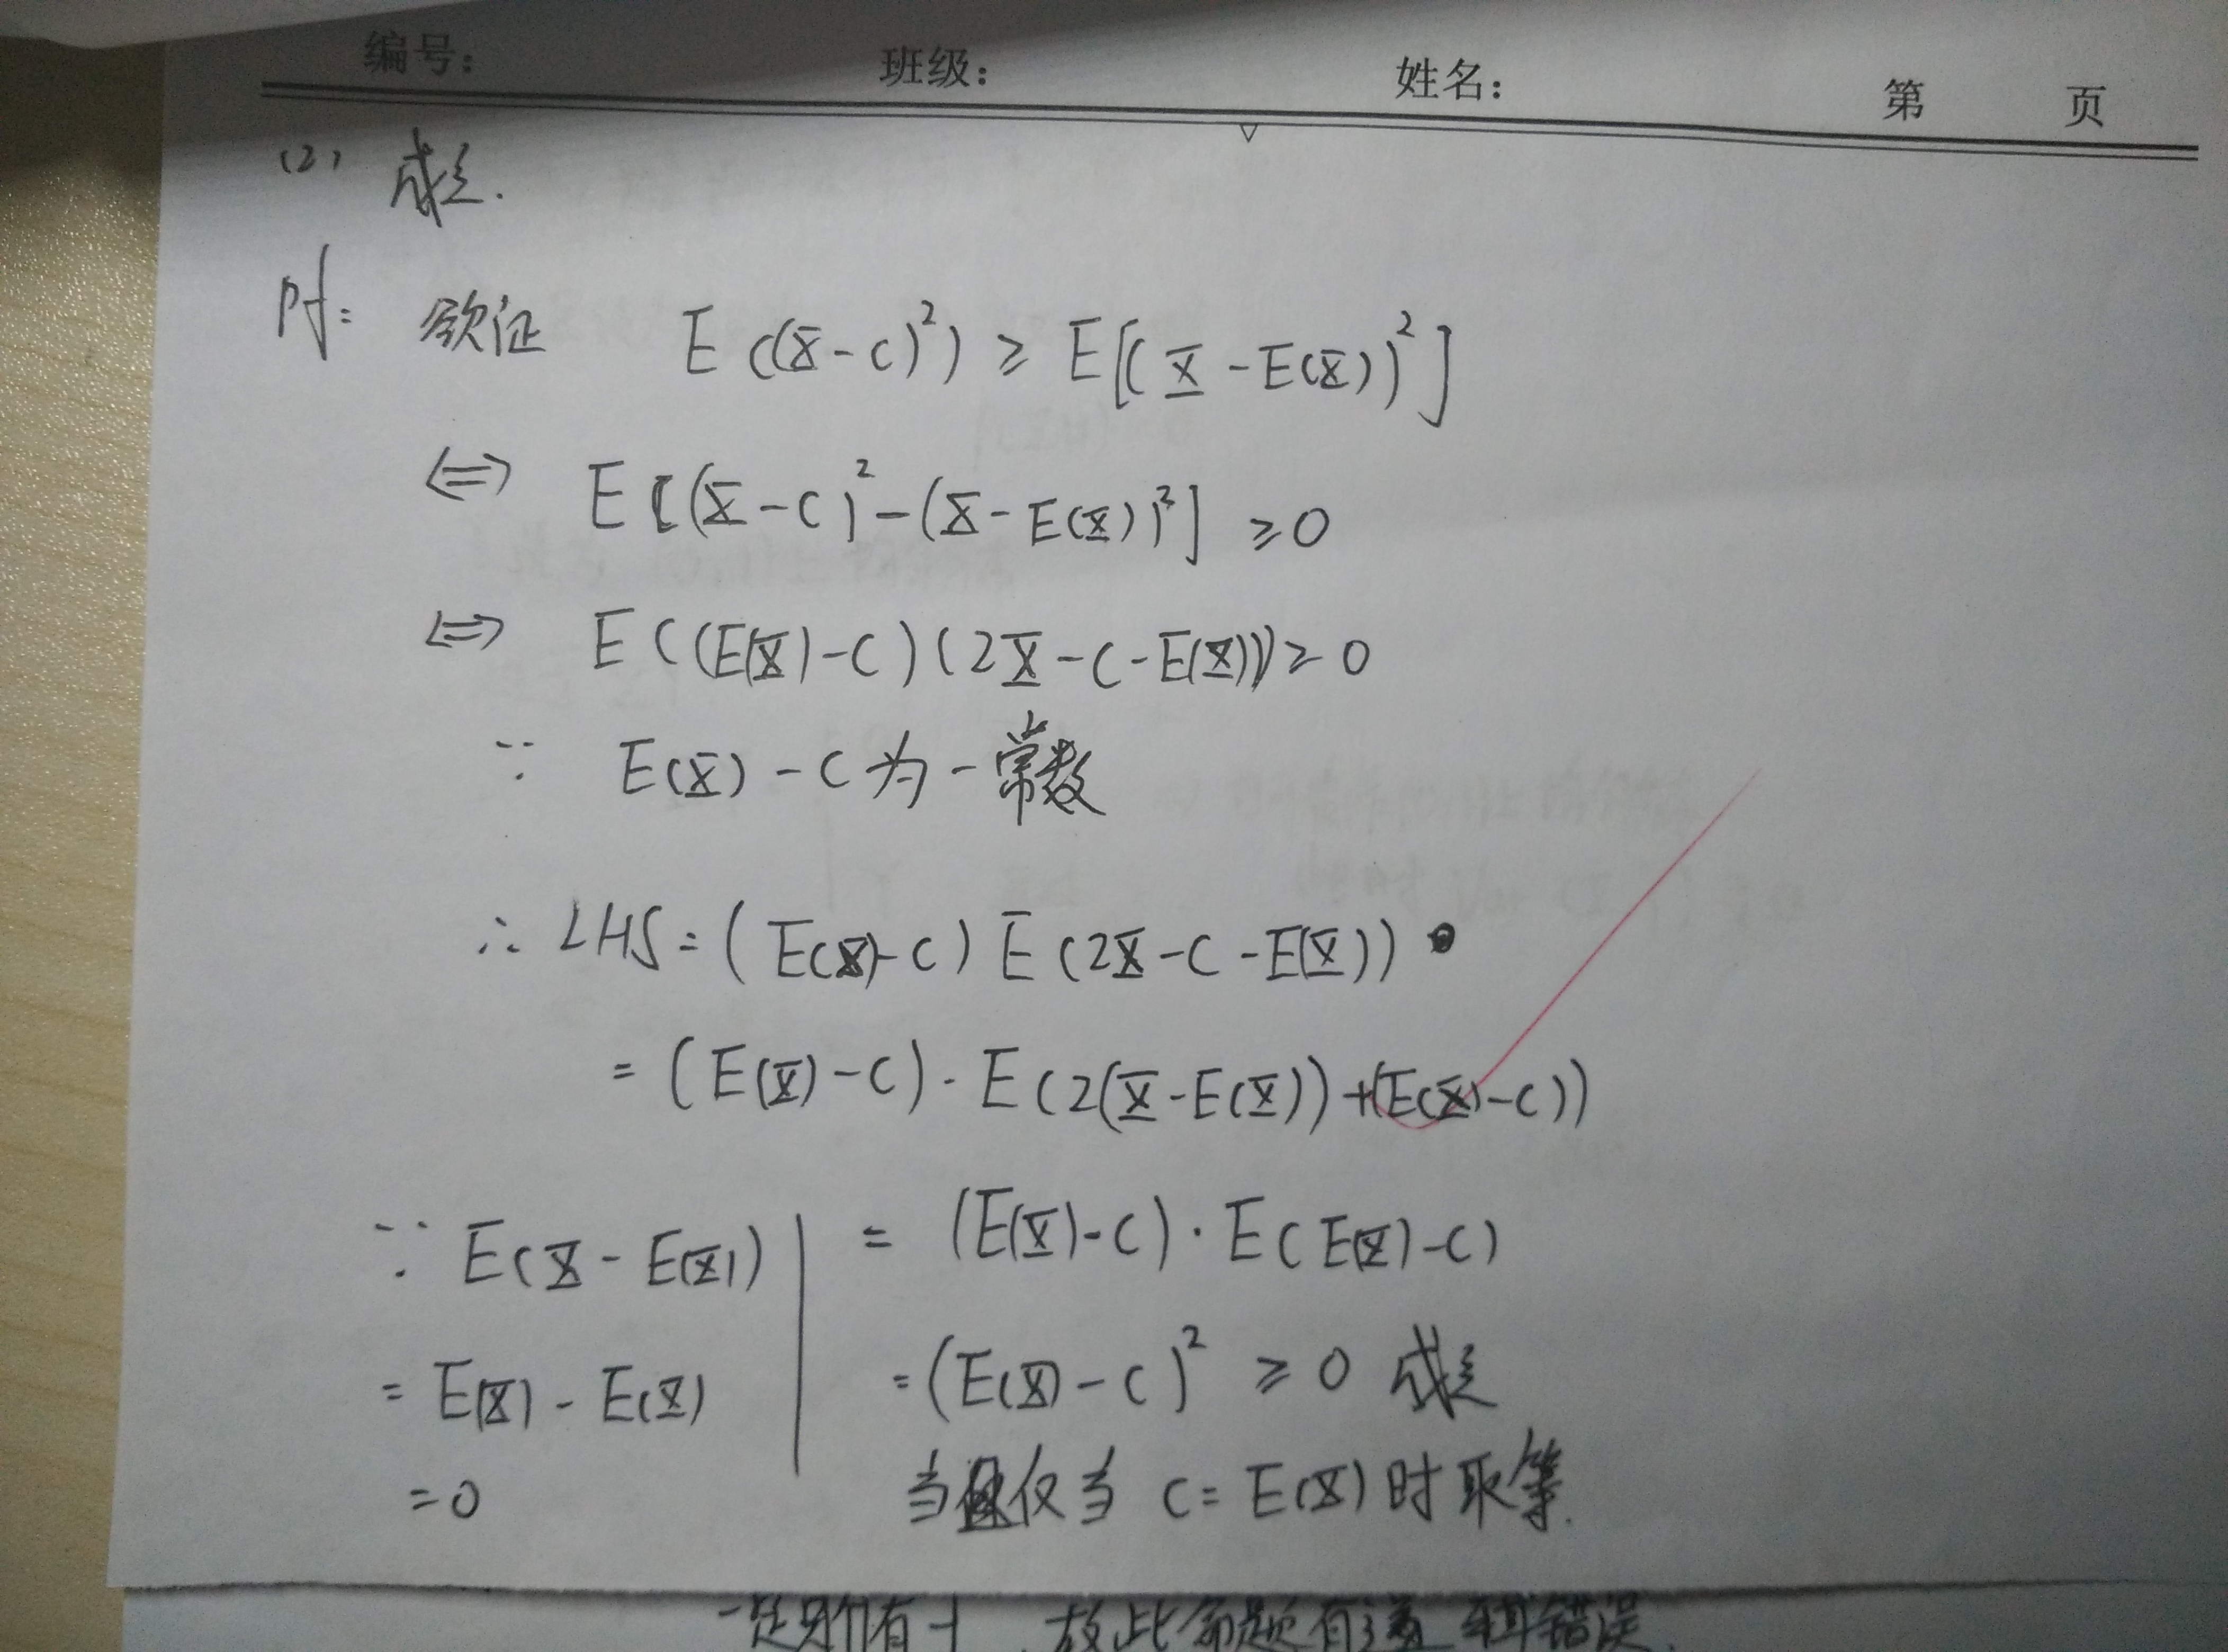 编号: 班级: 姓名: 第 页
(2) 成立.
Pf: 欲证 E((X-C)²) ≥ E[(X-E(X))²]
⇔ E[(X-C)²-(X-E(X))²] ≥0
⇔ E((E(X)-C)(2X-C-E(X)))≥0
∵ E(X)-C为一常数
∴ LHS=(E(X)-C)E(2X-C-E(X))
=(E(X)-C)·E(2(X-E(X))+(E(X)-C))
∵ E(X-E(X))
= E(X)-E(X)
=0
= (E(X)-C)·E(E(X)-C)
=(E(X)-C)² ≥0 成立
当且仅当 C=E(X)时取等.
故此命题有逻辑错误.